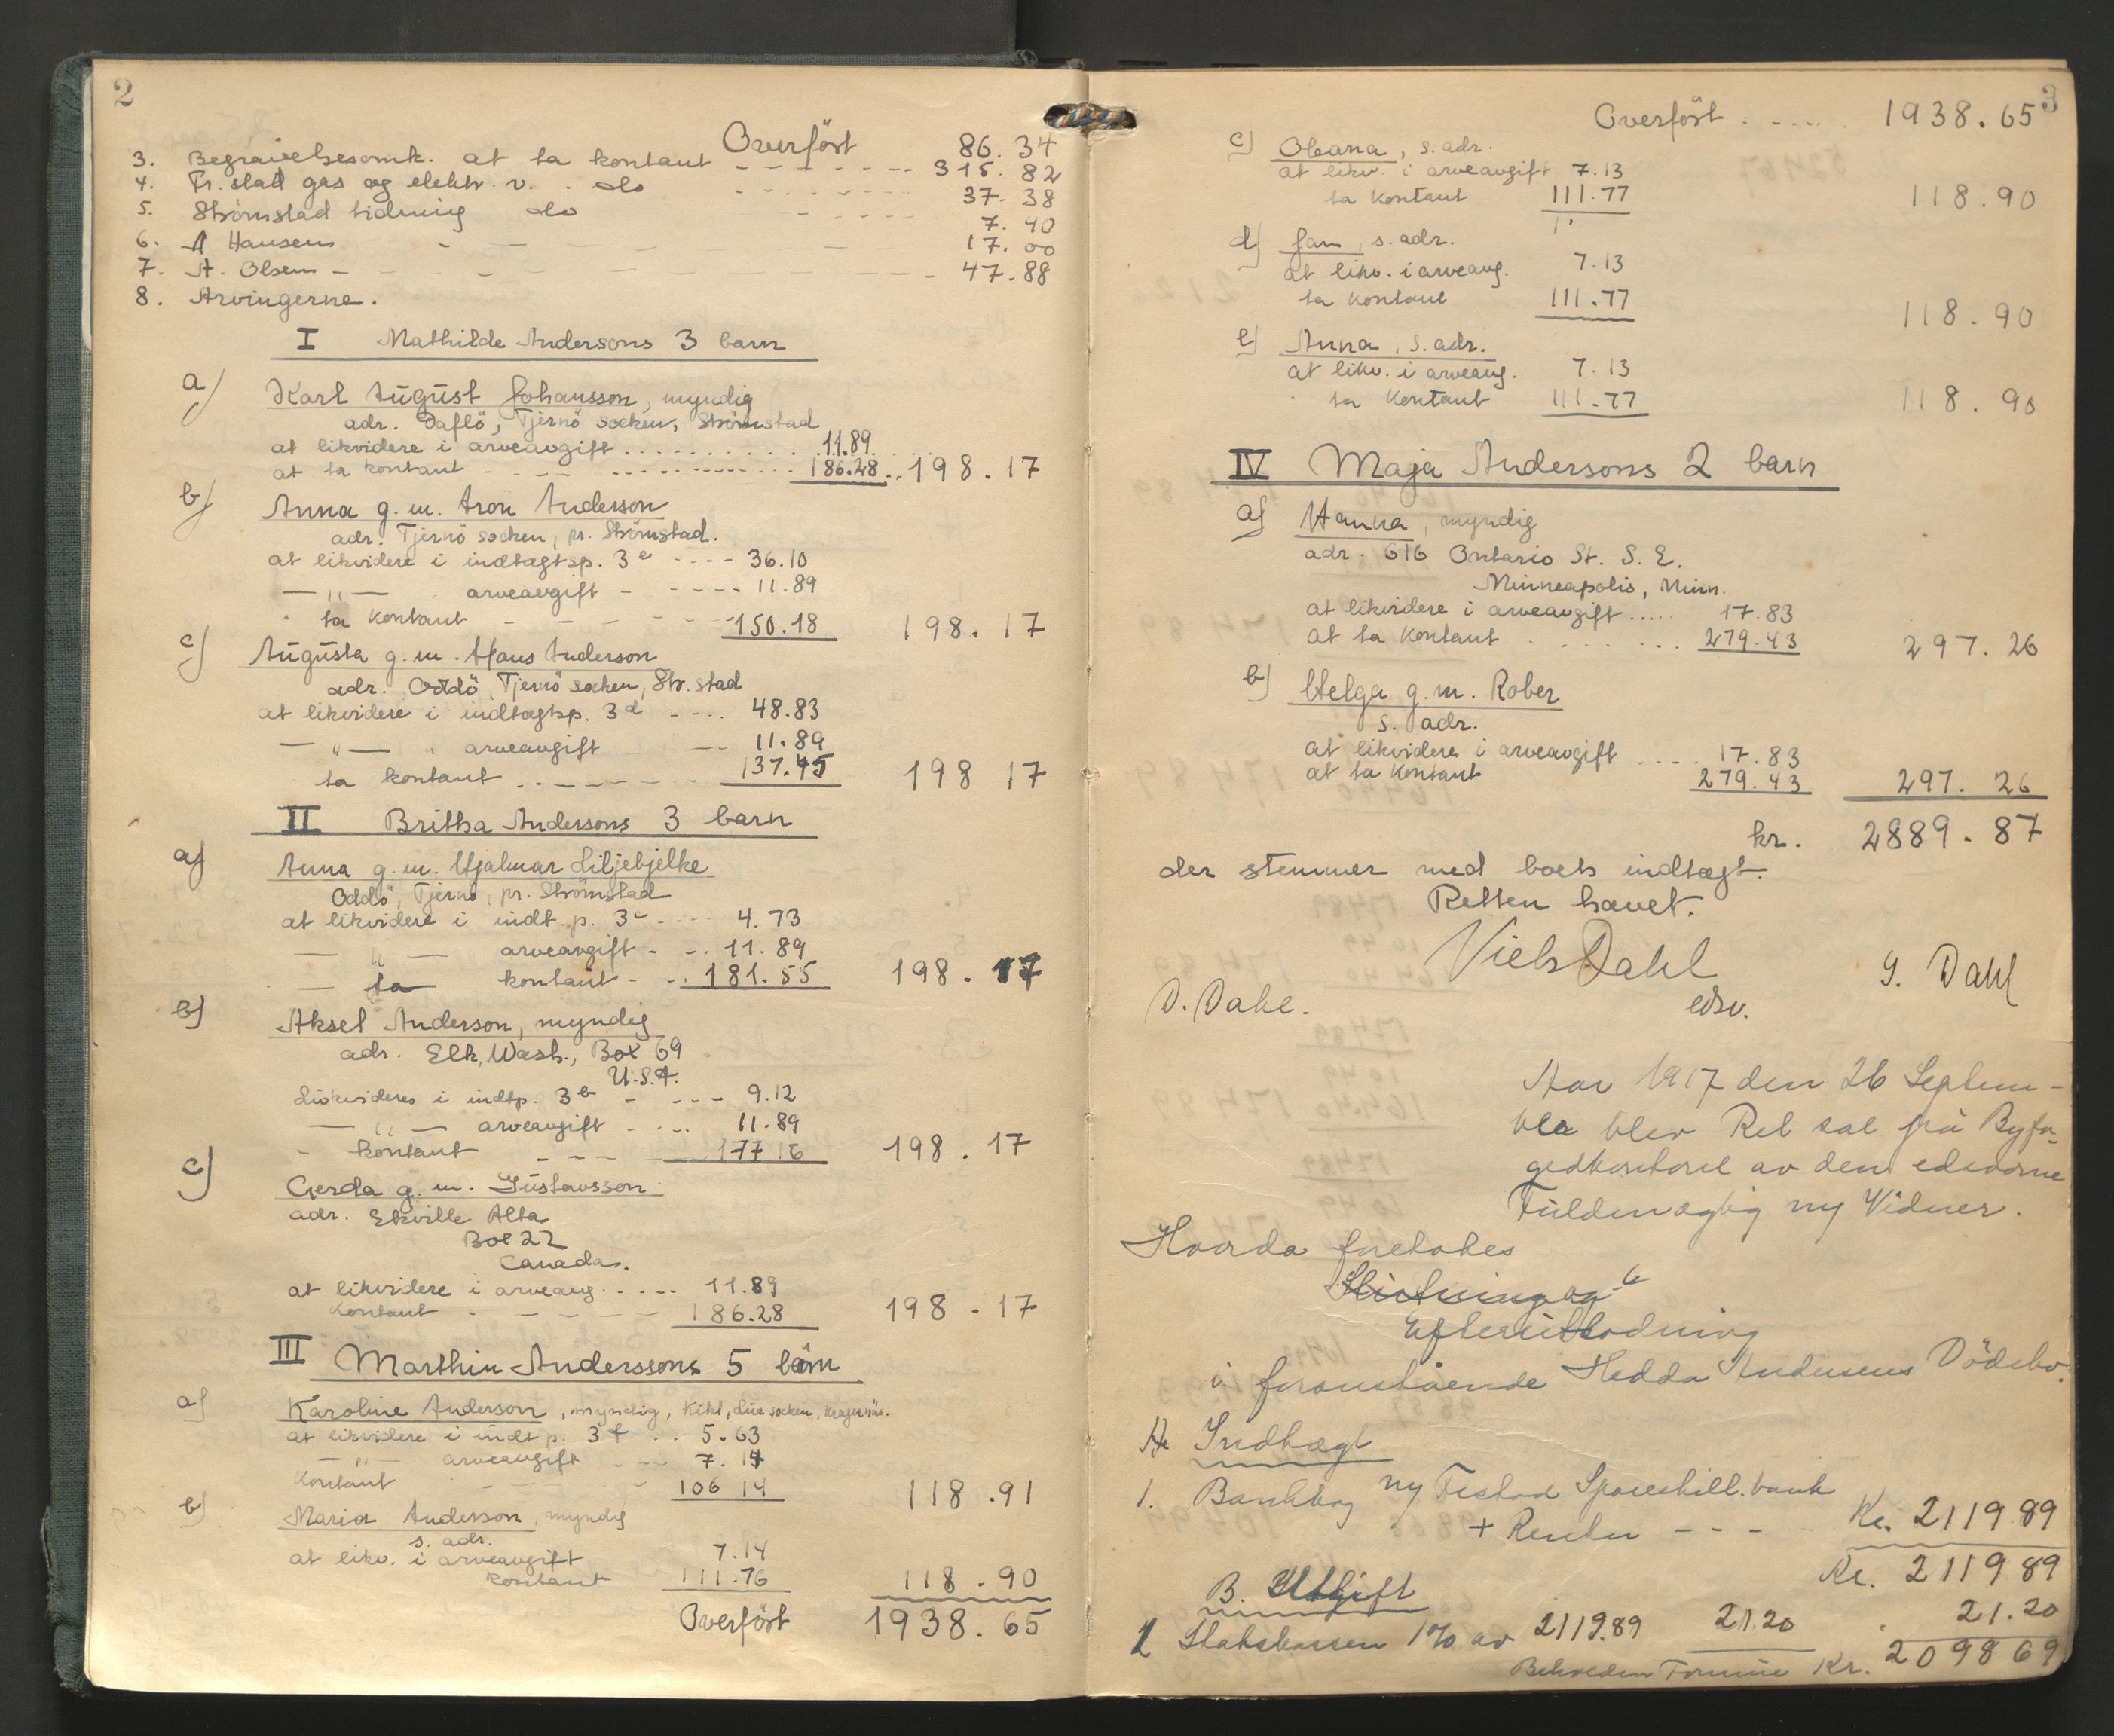 2
Overført 86.34
3. Begravelsesomk. at ta kontant - - - - - - - 315.82
4. Fr.stad gas og elektr. v. - do - - - - - - - 37.38
5. Strømstad tidning do - - - - - 7.40
6. A Hansen - - - - - 17.00
7. A. Olsen - - - - - - - 47.88
8. Arvingerne.
I Mathilde Andersons 3 barn
a) Karl August Johansson, myndig
adr. Daflö, Tjernö socken, Strömstad
at likvidere i arveavgift . . . . . . . . . . 11.89
at ta kontant - - - - . . . . . . . . . . 186.28 . . 198.17
b) Anna g. m. Aron Anderson
adr. Tjernö socken, pr. Strömstad.
at likvidere i indtægtsp. 3 c - - - - 36.10
— " — arveavgift - - - - - 11.89
" ta kontant - - - - - - 150.18 198.17
c) Augusta g. m. Hans Anderson
adr. Öddö, Tjernö socken, Str.stad
at likvidere i indtægtsp. 3 d - - - - 48.83
— " — " arveavgift - - 11.89
ta kontant - - - - - - - 137.45 198 17
II Britha Andersons 3 barn
a) Anna g. m. Hjalmar Liljebjelke
Oddö, Tjernö, pr. Strömstad
at likvidere i indt. p. 3 c - - - - 4.73
— " — arveavgift - - - 11.89
— ta kontant - - - 181.55 198.17
b) Aksel Anderson, myndig
adr. Elk, Wash., Box 69
U.S.A.
Likvideres i indtp. 3 b - - - - 9.12
— " — arveavgift - - - - 11.89
- kontant - - - 177 16 198.17
c) Gerda g. m. Gustavsson
adr. Ekville Alta
Box 22
Canada.
at likvidere i arveavg. - - - - 11.89
kontant - - - - - 186.28 198.17
III Marthin Anderssons 5 barn
a) Karoline Anderson, myndig, Kihl, Lur socken,
at likvidere i indt p. 3 f . . 5.63
— " — arveavgift - - - 7.14
kontant - - - - 106 14 118.91
b) Maria Anderson, myndig
s. adr.
at likv. i arveavgift 7.14
kontant 111.76 118.90
Overført 1938.65
3
Overført . - - - - 1938.65
c) Oleana, s. adr.
at likv. i arveavgift 7.13
ta kontant 111.77 118.90
d) Jan, s. adr.
at likv. i arveavg. 7.13
ta kontant 111.77 118.90
e) Anna, s. adr.
at likv. i arveavg. 7.13
ta kontant 111.77 118.90
IV Maja Andersons 2 barn
a) Hanna, myndig
adr. 616 Ontario St. S. E.
Minneapolis, Minn.
at likvidere i arveavgift . . . . . 17.83
at ta kontant . . . . . . . 279.43 297.26
b) Helga g. m. Rober
s. adr.
at likvidere i arveavgift . . . . 17.83
at ta kontant 279.43 297.26
kr. 2889.87
der stemmer med boets indtægt.
Retten hævet.
Niels Dahl G. Dahl
D. Dahl. edsv.
Aar 1917 den 26 Septem-
ble blev Ret sat på Byfo-
gedkontoret av den edsvorne
Fuldmægtig ny Vidner.
Hvorda foretokes
Slutning og
Efterutlodning
i foranstående Hedda Andersens Dödsbo.
A. Indtægt
1. Bankbog ny Frstad Spareskill. bank
+ Renter - - - - Kr. 2119.89
Kr. 2119 89
B. Utgift
1 Statskassen 1% av 2119.89 21.20 21.20
Beholden Formue Kr. 2098 69